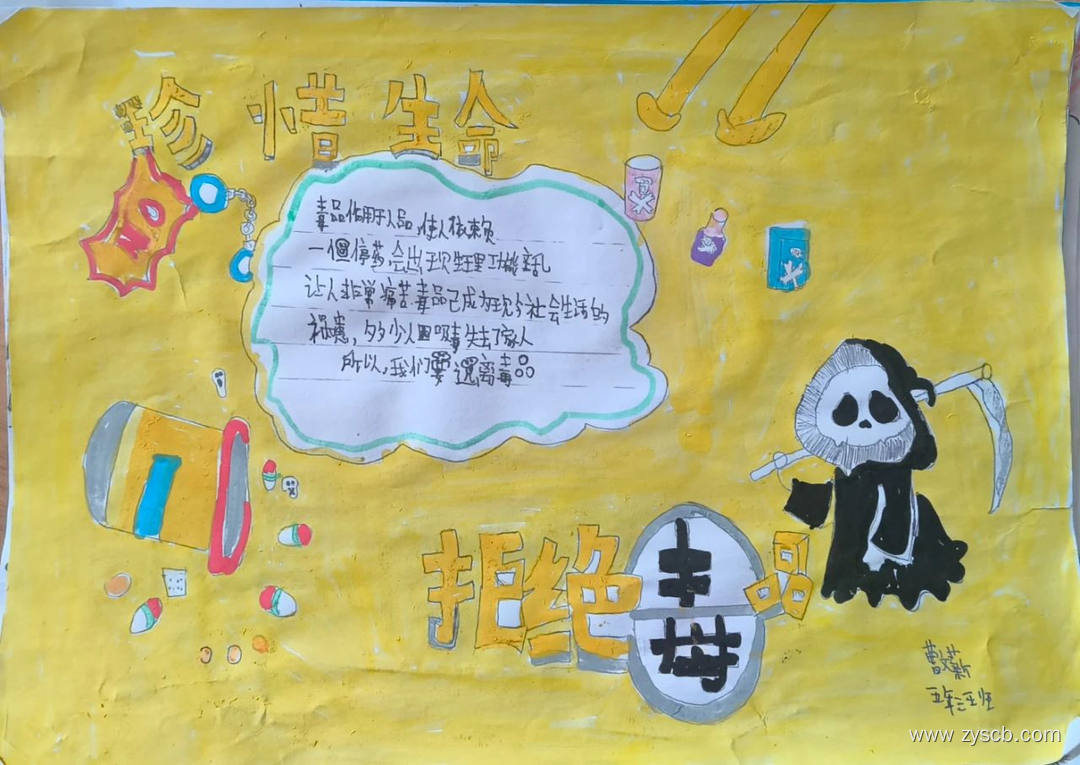 珍惜生命
毒品作用于人品,使人依赖
一個停药,会出现生理功能紊乱
让人非常痛苦毒品已成为现今社会生活的
祸患,多少人因吸毒失去了家人
所以,我们要远离毒品
拒绝毒品
五年三班
www.zyscb.com